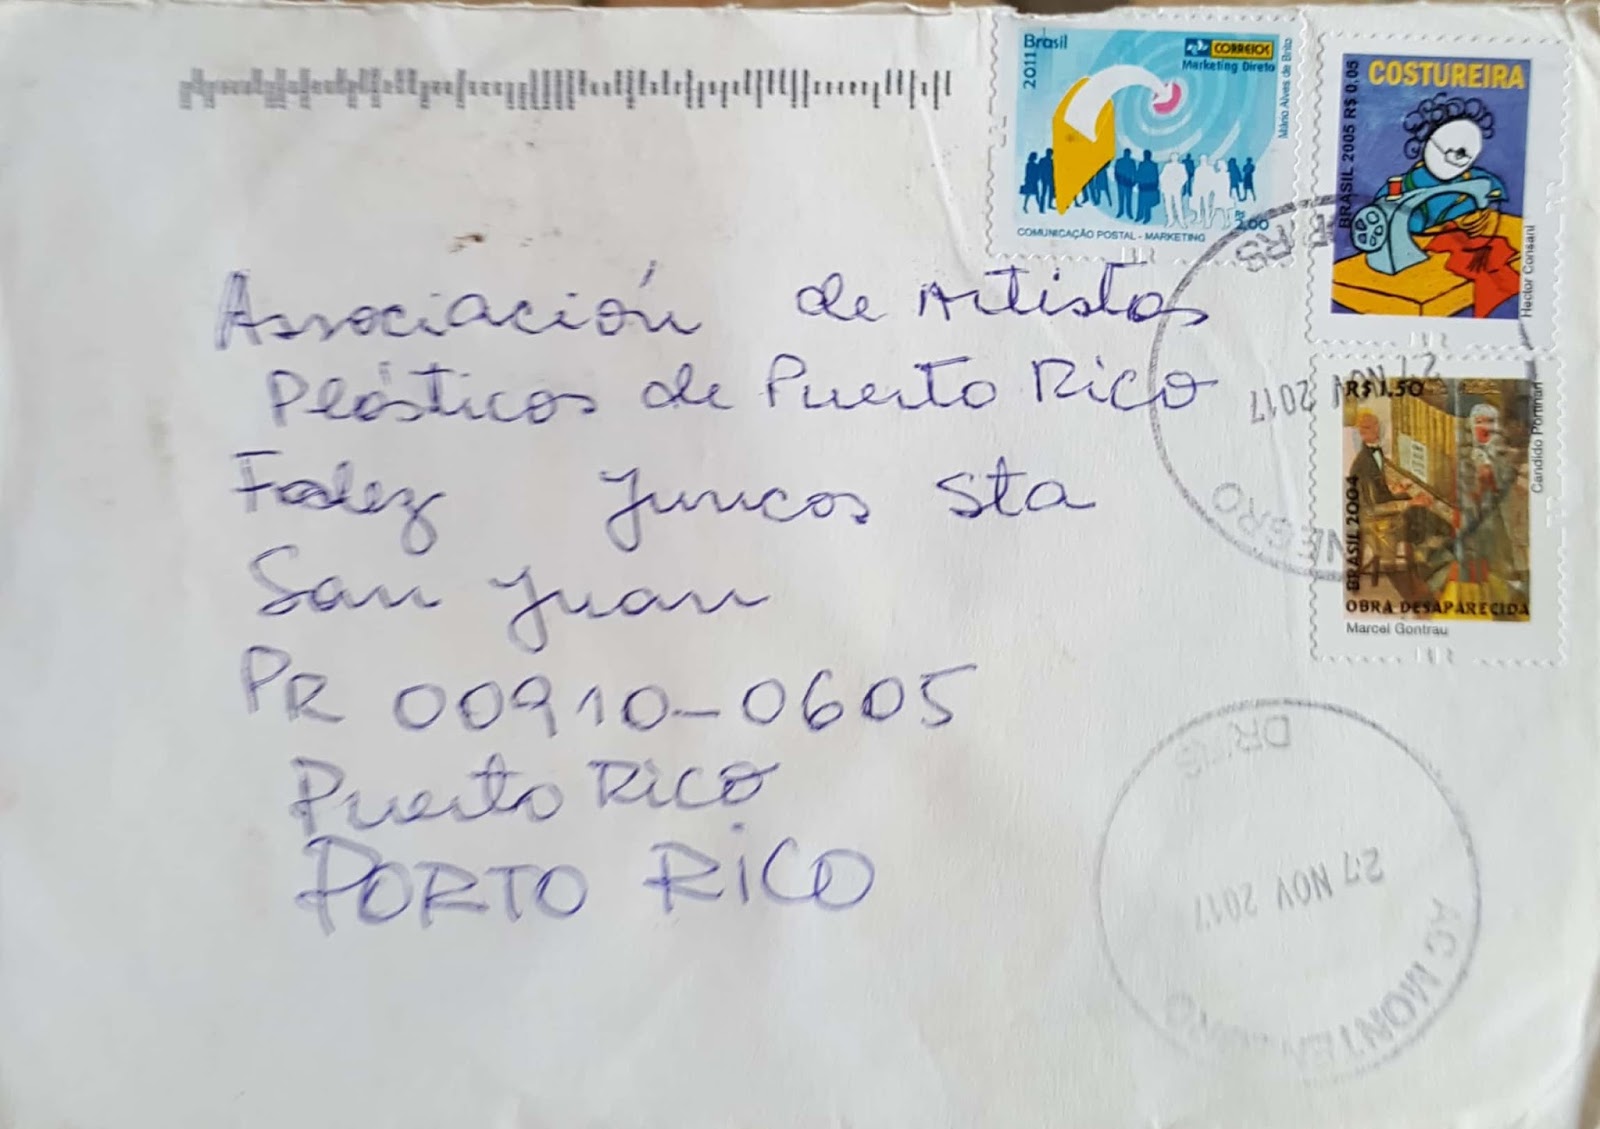 Brasil
2011
CORREIOS
Marketing Direto
Mário Alves de Brito
R$ 2,00
COMUNICAÇÃO POSTAL - MARKETING
COSTUREIRA
BRASIL 2005 R$ 0,05
Hector Consani
R$ 1,50
Candido Portinari
BRASIL 2004
OBRA DESAPARECIDA
Marcel Gontrau
RS
27 NOV 2017
NEGRO
Associación de Artistas
Plásticos de Puerto Rico
Fdez Juncos Sta
San Juan
PR 00910-0605
Puerto Rico
PORTO RICO
DR/RS
27 NOV 2017
AC MONTENEGRO